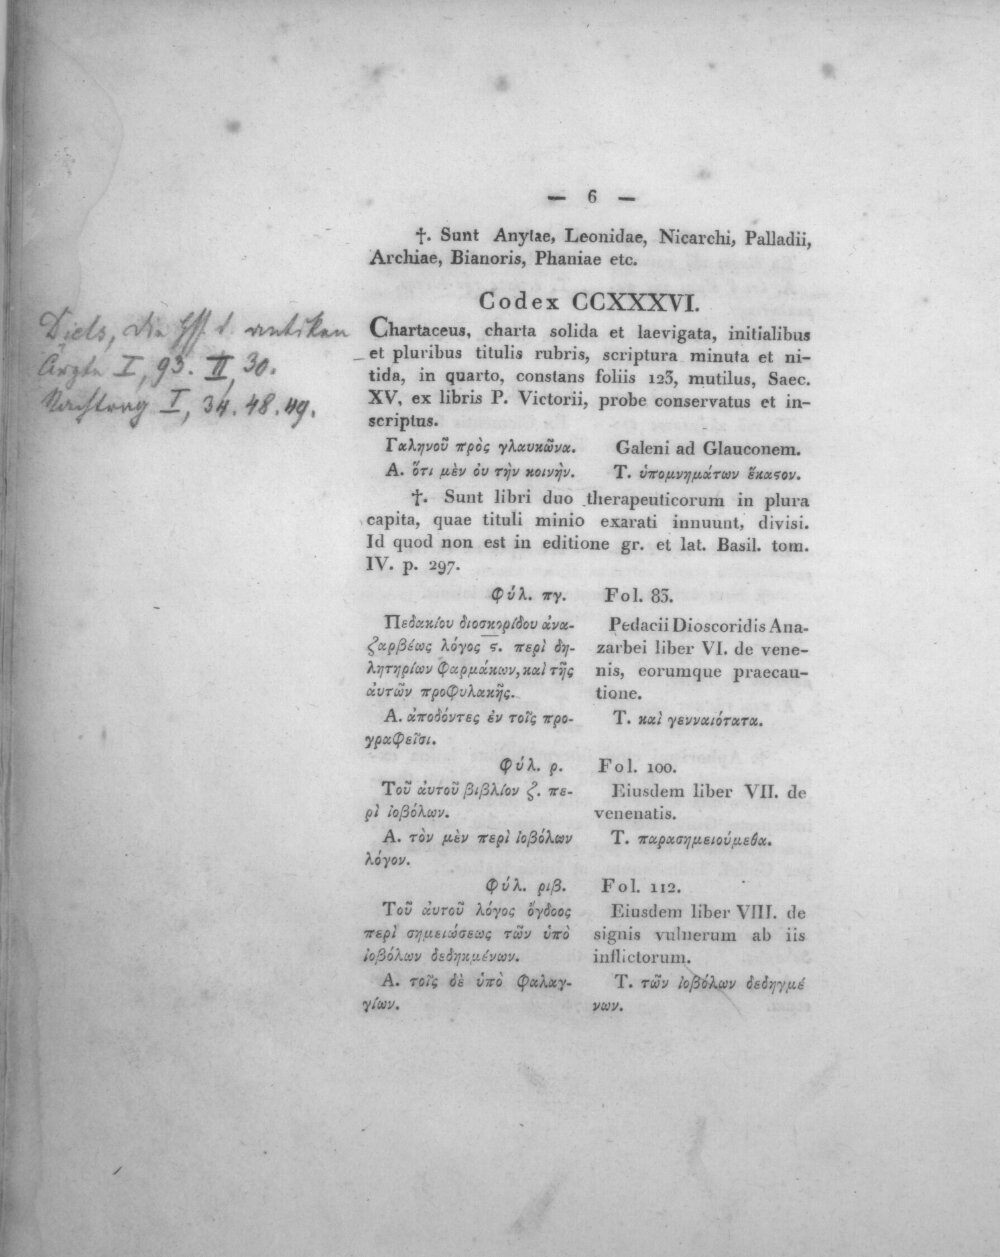 — 6 —
†. Sunt Anytae, Leonidae, Nicarchi, Palladii,
Archiae, Bianoris, Phaniae etc.
Codex CCXXXVI.
Chartaceus, charta solida et laevigata, initialibus
et pluribus titulis rubris, scriptura minuta et ni-
tida, in quarto, constans foliis 123, mutilus, Saec.
XV, ex libris P. Victorii, probe conservatus et in-
scriptus.
Diels, die Hss d. antiken
Ärzte I, 93. II, 30.
Nachtrag I, 34. 48. 49.
Γαληνοῦ πρὸς γλαυκῶνα.
Α. ὅτι μὲν ὀυ τὴν κοινὴν.
Galeni ad Glauconem.
T. ὑπομνημάτων ἕκαϛον.
†. Sunt libri duo therapeuticorum in plura
capita, quae tituli minio exarati innuunt, divisi.
Id quod non est in editione gr. et lat. Basil. tom.
IV. p. 297.
Φύλ. πγ.
Πεδακίου διοσκορίδου ἀνα-
ζαρβέως λόγος ϛ. περὶ δη-
λητηρίων φαρμάκων, καὶ τῆς
ἀυτῶν προφυλακῆς.
Α. ἀποδόντες ἐν τοῖς προ-
γραφεῖσι.
Fol. 83.
Pedacii Dioscoridis Ana-
zarbei liber VI. de vene-
nis, eorumque praecau-
tione.
T. καὶ γενναιότατα.
Φύλ. ρ.
Τοῦ ἀυτοῦ βιβλίον ζ. πε-
ρὶ ἰοβόλων.
Α. τὸν μὲν περὶ ἰοβόλων
λόγον.
Fol. 100.
Eiusdem liber VII. de
venenatis.
T. παρασημειούμεθα.
Φύλ. ριβ.
Τοῦ ἀυτοῦ λόγος ὄγδοος
περὶ σημειώσεως τῶν ὑπὸ
ἰοβόλων δεδηκμένων.
Α. τοῖς δὲ ὑπὸ φαλαγ-
γίων.
Fol. 112.
Eiusdem liber VIII. de
signis vulnerum ab iis
inflictorum.
T. τῶν ἰοβόλων δεδηγμέ
νων.